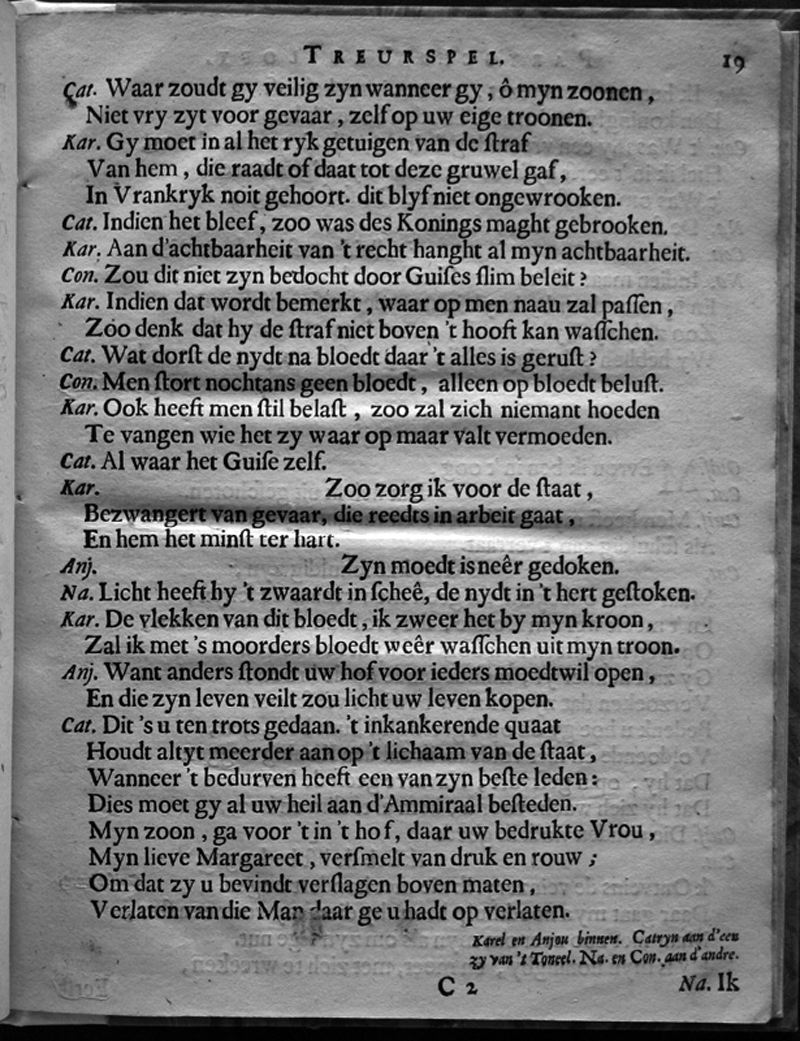 TREURSPEL. 19
Cat. Waar zoudt gy veilig zyn wanneer gy, ô myn zoonen,
Niet vry zyt voor gevaar, zelf op uw eige troonen.
Kar. Gy moet in al het ryk getuigen van de ſtraf
Van hem, die raadt of daat tot deze gruwel gaf,
In Vrankryk noit gehoort. dit blyf niet ongewrooken.
Cat. Indien het bleef, zoo was des Konings maght gebrooken.
Kar. Aan d'achtbaarheit van 't recht hanght al myn achtbaarheit.
Con. Zou dit niet zyn bedocht door Guiſes ſlim beleit?
Kar. Indien dat wordt bemerkt, waar op men naau zal paſſen,
Zoo denk dat hy de ſtraf niet boven 't hooft kan waſſchen.
Cat. Wat dorſt de nydt na bloedt daar 't alles is geruſt?
Con. Men ſtort nochtans geen bloedt, alleen op bloedt beluſt.
Kar. Ook heeft men ſtil belaſt, zoo zal zich niemant hoeden
Te vangen wie het zy waar op maar valt vermoeden.
Cat. Al waar het Guiſe zelf.
Kar. Zoo zorg ik voor de ſtaat,
Bezwangert van gevaar, die reedts in arbeit gaat,
En hem het minſt ter hart.
Anj. Zyn moedt is neêr gedoken.
Na. Licht heeft hy 't zwaardt in ſcheê, de nydt in 't hert geſtoken.
Kar. De vlekken van dit bloedt, ik zweer het by myn kroon,
Zal ik met 's moorders bloedt weêr waſſchen uit myn troon.
Anj. Want anders ſtondt uw hof voor ieders moedtwil open,
En die zyn leven veilt zou licht uw leven kopen.
Cat. Dit 's u ten trots gedaan. 't inkankerende quaat
Houdt altyt meerder aan op 't lichaam van de ſtaat,
Wanneer 't bedurven heeft een van zyn beſte leden:
Dies moet gy al uw heil aan d'Ammiraal beſteden.
Myn zoon, ga voor 't in 't hof, daar uw bedrukte Vrou,
Myn lieve Margareet, verſmelt van druk en rouw;
Om dat zy u bevindt verſlagen boven maten,
Verlaten van die Man daar ge u hadt op verlaten.
Karel en Anjou binnen. Catryn aan d'een
zy van 't Toneel. Na. en Con. aan d'andre.
C 2 Na. Ik